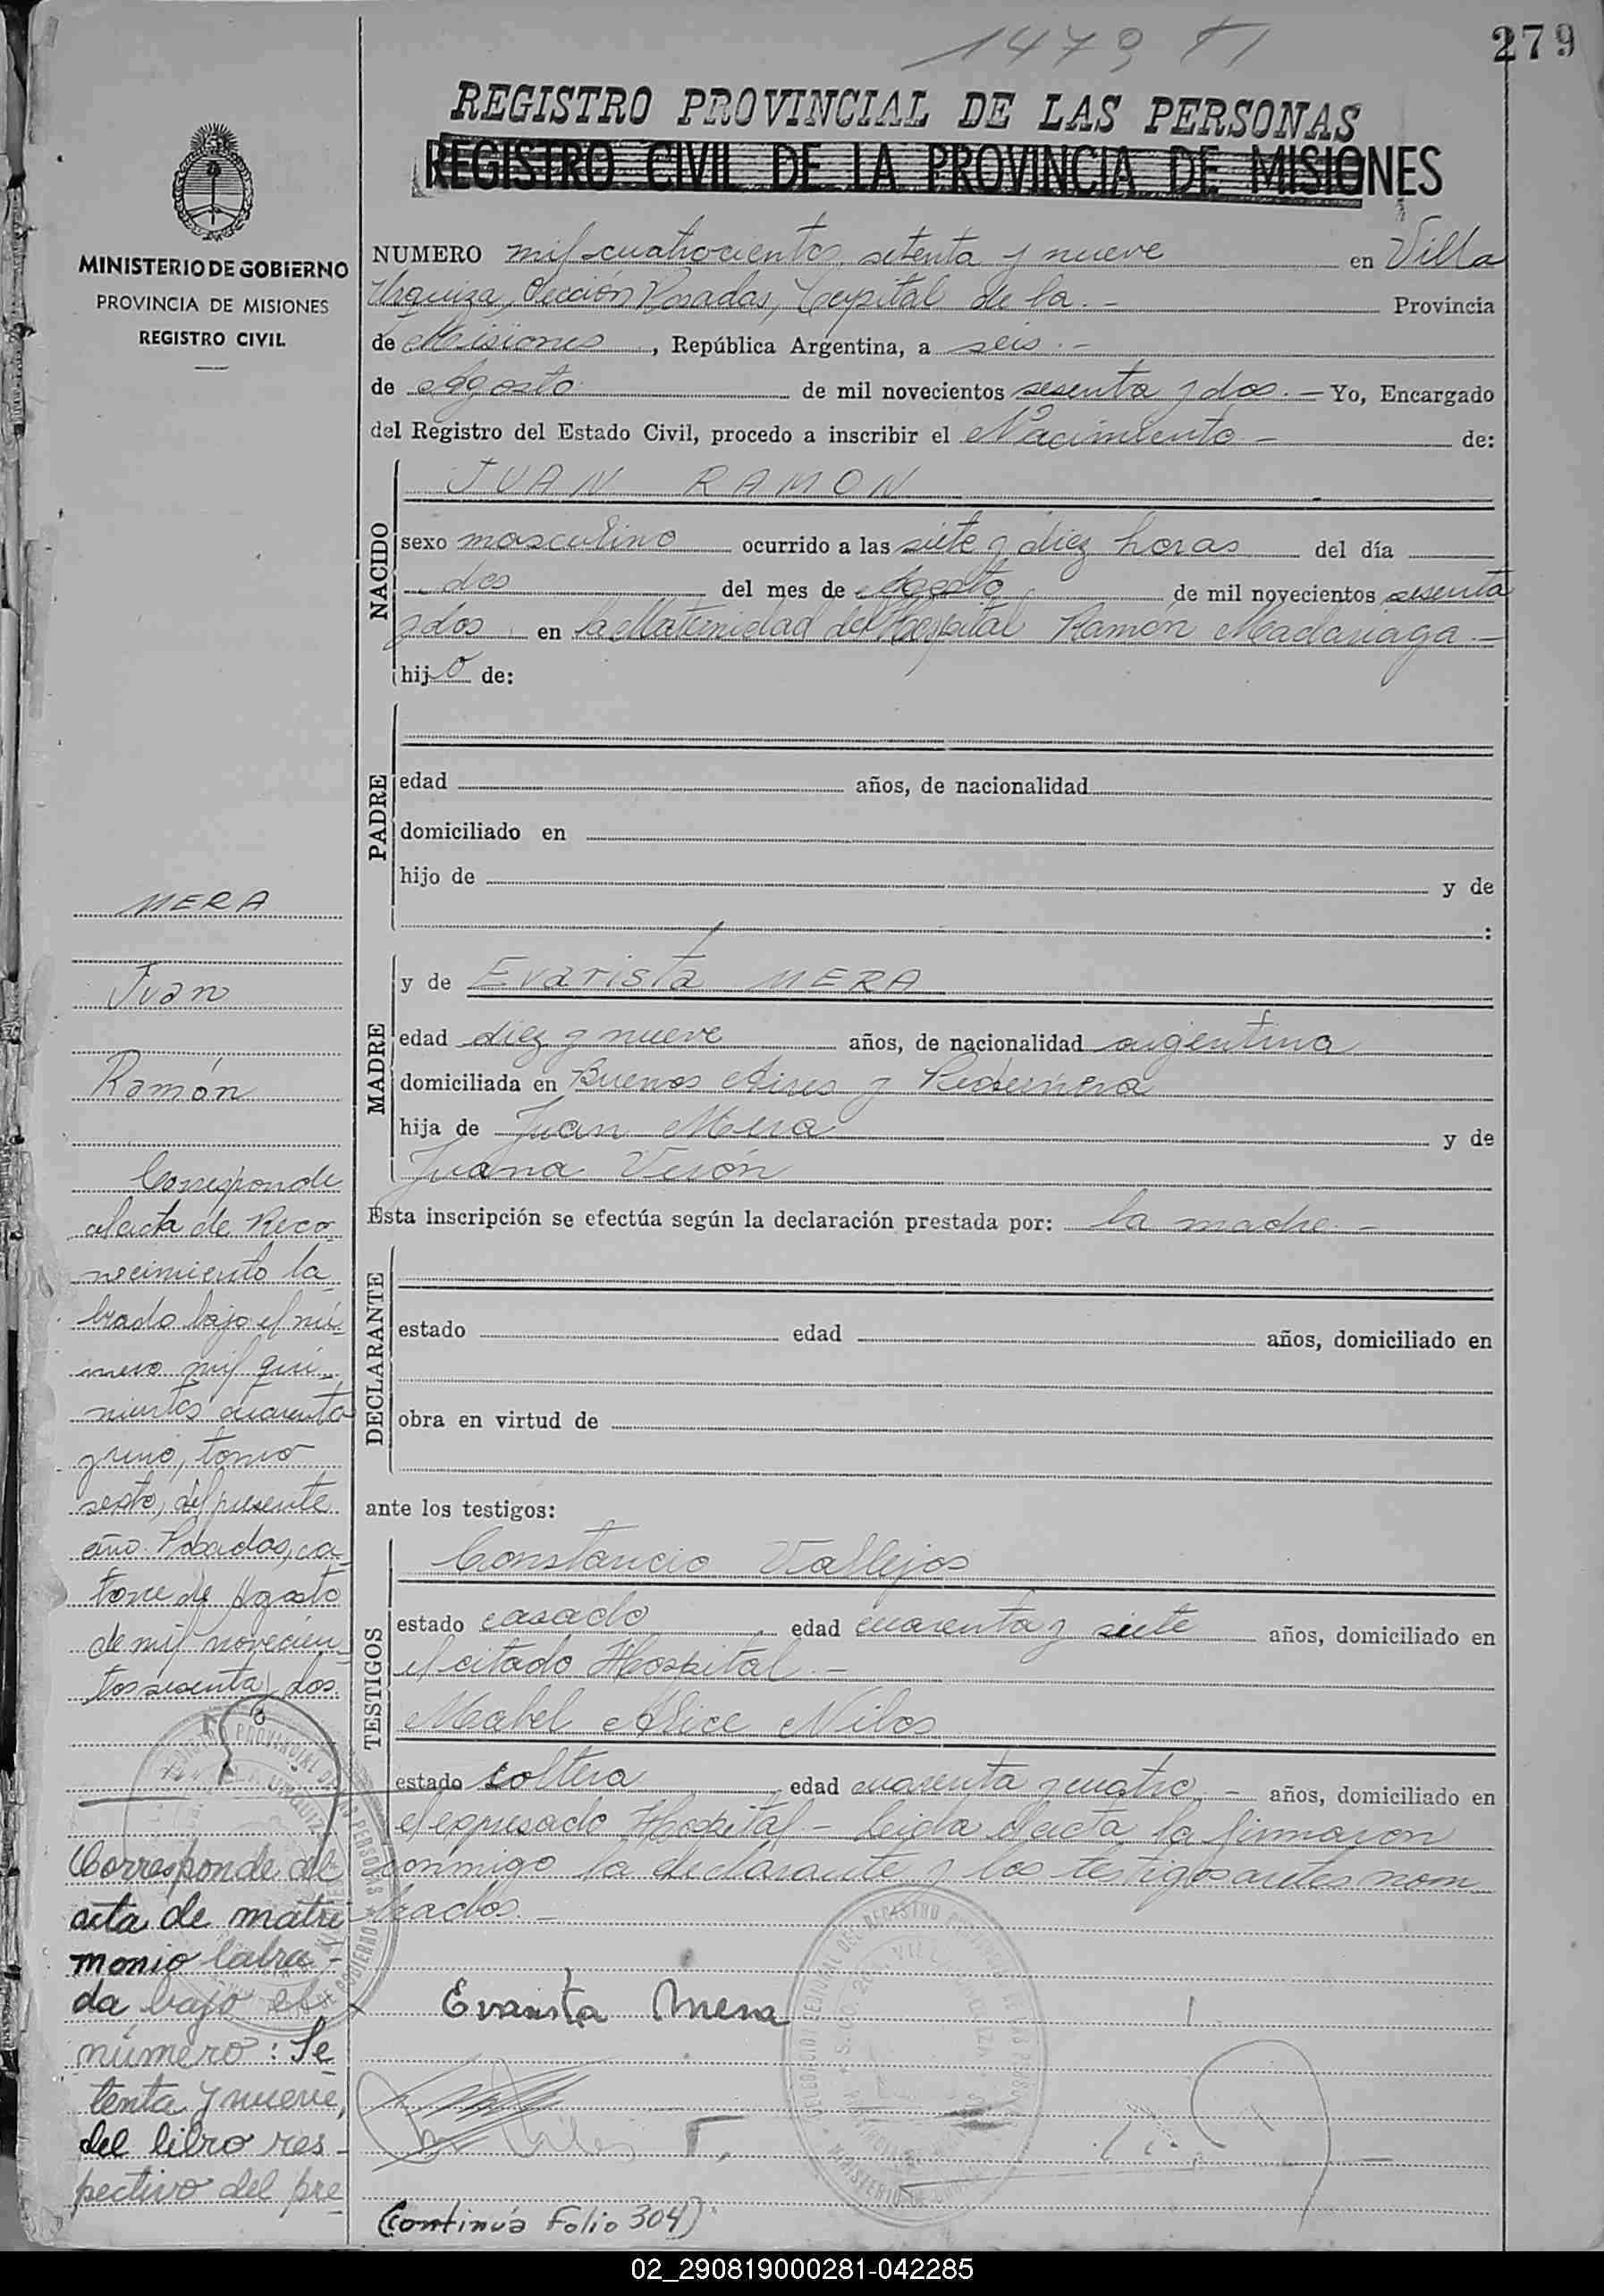 1479 T I
279
REGISTRO PROVINCIAL DE LAS PERSONAS
REGISTRO CIVIL DE LA PROVINCIA DE MISIONES
MINISTERIO DE GOBIERNO
PROVINCIA DE MISIONES
REGISTRO CIVIL
NUMERO mil cuatrocientos setenta y nueve en Villa
Urquiza, Sección Posadas, Capital de la.- Provincia
de Misiones, República Argentina, a seis.-
de Agosto de mil novecientos sesenta y dos.- Yo, Encargado
del Registro del Estado Civil, procedo a inscribir el Nacimiento - de:
NACIDO
JUAN RAMON
sexo masculino ocurrido a las siete y diez horas del día
dos del mes de Agosto de mil novecientos sesenta
y dos en la Maternidad del Hospital Ramón Madariaga.-
hijo de:
PADRE
edad años, de nacionalidad
domiciliado en
hijo de y de
:
MADRE
y de Evarista MERA
edad diez y nueve años, de nacionalidad argentina
domiciliada en Buenos Aires y
hija de Juan Mera y de
Juana Verón
Esta inscripción se efectúa según la declaración prestada por: la madre.-
DECLARANTE
estado edad años, domiciliado en
obra en virtud de
ante los testigos:
TESTIGOS
Constancio Vallejos
estado casado edad cuarenta y siete años, domiciliado en
el citado Hospital.-
Mabel Alice Niles
estado soltera edad cuarenta y cuatro.- años, domiciliado en
el expresado Hospital.- Leida el acta, la firmaron
conmigo la declarante y los testigos antes nom-
brados.-
Evarista Mera
(Continúa Folio 304)
MERA
Juan
Ramón
Corresponde
al acta de Reco-
nocimiento la-
brado bajo el nú-
mero mil qui-
nientos cuarenta
y uno, tomo
sexto, del presente
año. Posadas, ca-
torce de Agosto
de mil novecien-
tos sesenta y dos.
Corresponde al
acta de matri-
monio labra-
da bajo el
número: Se
tenta y nueve,
del libro res-
pectivo del pre
02_290819000281-042285